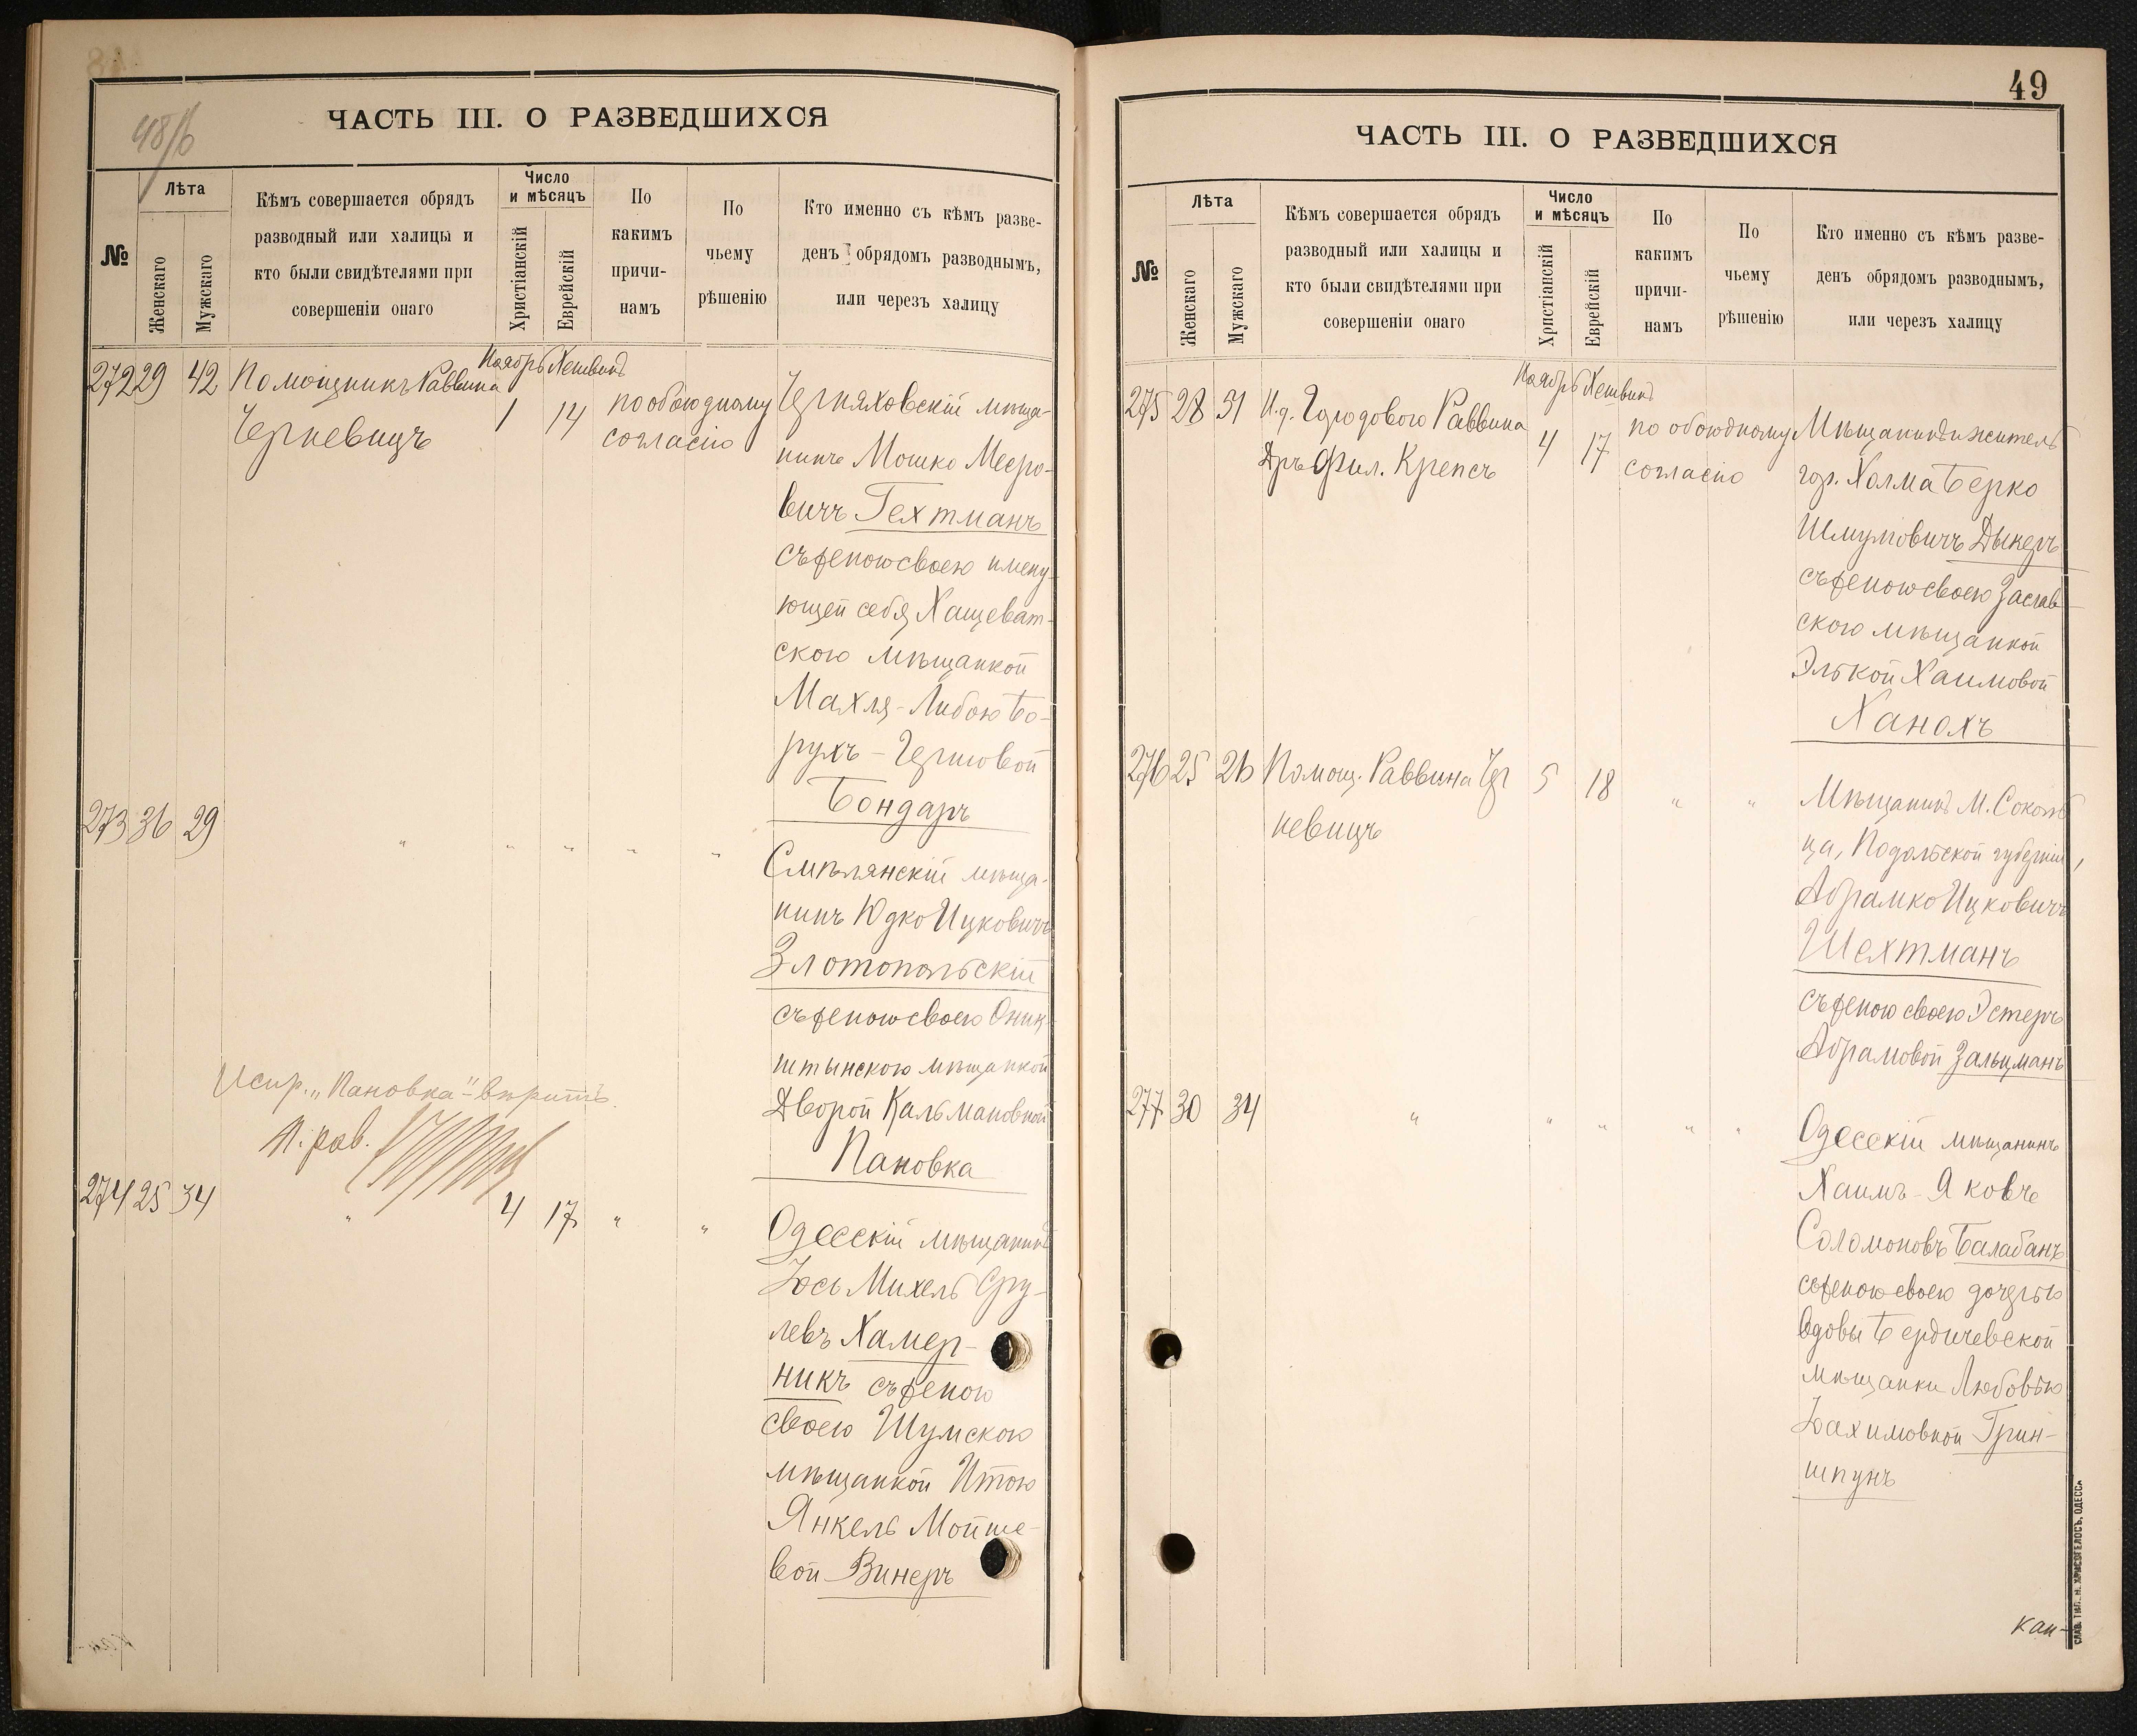 48/б
ЧАСТЬ III. О РАЗВЕДШИХСЯ
№
Лѣта
Женскаго
Мужскаго
Кѣмъ совершается обрядъ
разводный или халицы и
кто были свидѣтелями при
совершеніи онаго
Число
и мѣсяцъ
Христіанскій
Еврейскій
По
какимъ
причи-
намъ
По
чьему
рѣшенію
Кто именно съ кѣмъ разве-
денъ обрядомъ разводнымъ,
или черезъ халицу
Ноябрь Хешвинъ
272 29 42 Помощникъ Раввина
Черневицъ
1 14
по обоюдному
согласію
Черняховскій мѣща-
нинъ Мошко Мееро-
вичъ Гехтманъ
съ женою своею имену-
ющей себя Хащеват-
скою мѣщанкой
Махля-Либою Бо-
рухъ-Гершовой
Бондаръ
273 36 29 " " " " "
Смѣлянскій мѣща-
нинъ Юдко Ицковичъ
Златопольскій
съ женою своею Оник-
штынскою мѣщанкой
Дворой Кальмановной
Пановка
Испр. „Пановка"-вѣрить.
П. рав.
274 25 34 " 4 17 " "
Одесскій мѣщанинъ
Іось Михель Сру-
левъ Хамер-
никъ съ женою
своею Шумскою
мѣщанкой Итою
Янкель Мойше-
вой Винеръ
49
ЧАСТЬ III. О РАЗВЕДШИХСЯ
№
Лѣта
Женскаго
Мужскаго
Кѣмъ совершается обрядъ
разводный или халицы и
кто были свидѣтелями при
совершеніи онаго
Число
и мѣсяцъ
Христіанскій
Еврейскій
По
какимъ
причи-
намъ
По
чьему
рѣшенію
Кто именно съ кѣмъ разве-
денъ обрядомъ разводнымъ,
или черезъ халицу
Ноябрь Хешвинъ
275 28 51 И.д. Городового Раввина
Дръ Фил. Крепсъ
4 17
по обоюдному
согласію
Мѣщанинъ и житель
гор. Холма Берко
Шмулювичъ Дыкеръ
съ женою своею Заслав-
скою мѣщанкой
Элькой Хаимовой
Ханохъ
276 25 26 Помощ. Раввина Чер
невицъ
5 18 " "
Мѣщанинъ М. Соколь
ца, Подольской губерніи,
Абрамко Ицковичъ
Шехтманъ
съ женою своею Эстеръ
Абрамовой Зальцманъ
277 30 34 " " " " "
Одесскій мѣщанинъ
Хаимъ-Яковъ
Соломоновъ Балабанъ
съ женою своею дочерью
вдовы Бердичевской
мѣщанки Любовью
Іоахимовной Грин-
шпунъ
Кан-
СЛАВ. ТИП. Н. ХРИСОГЕЛОСЪ, ОДЕССА